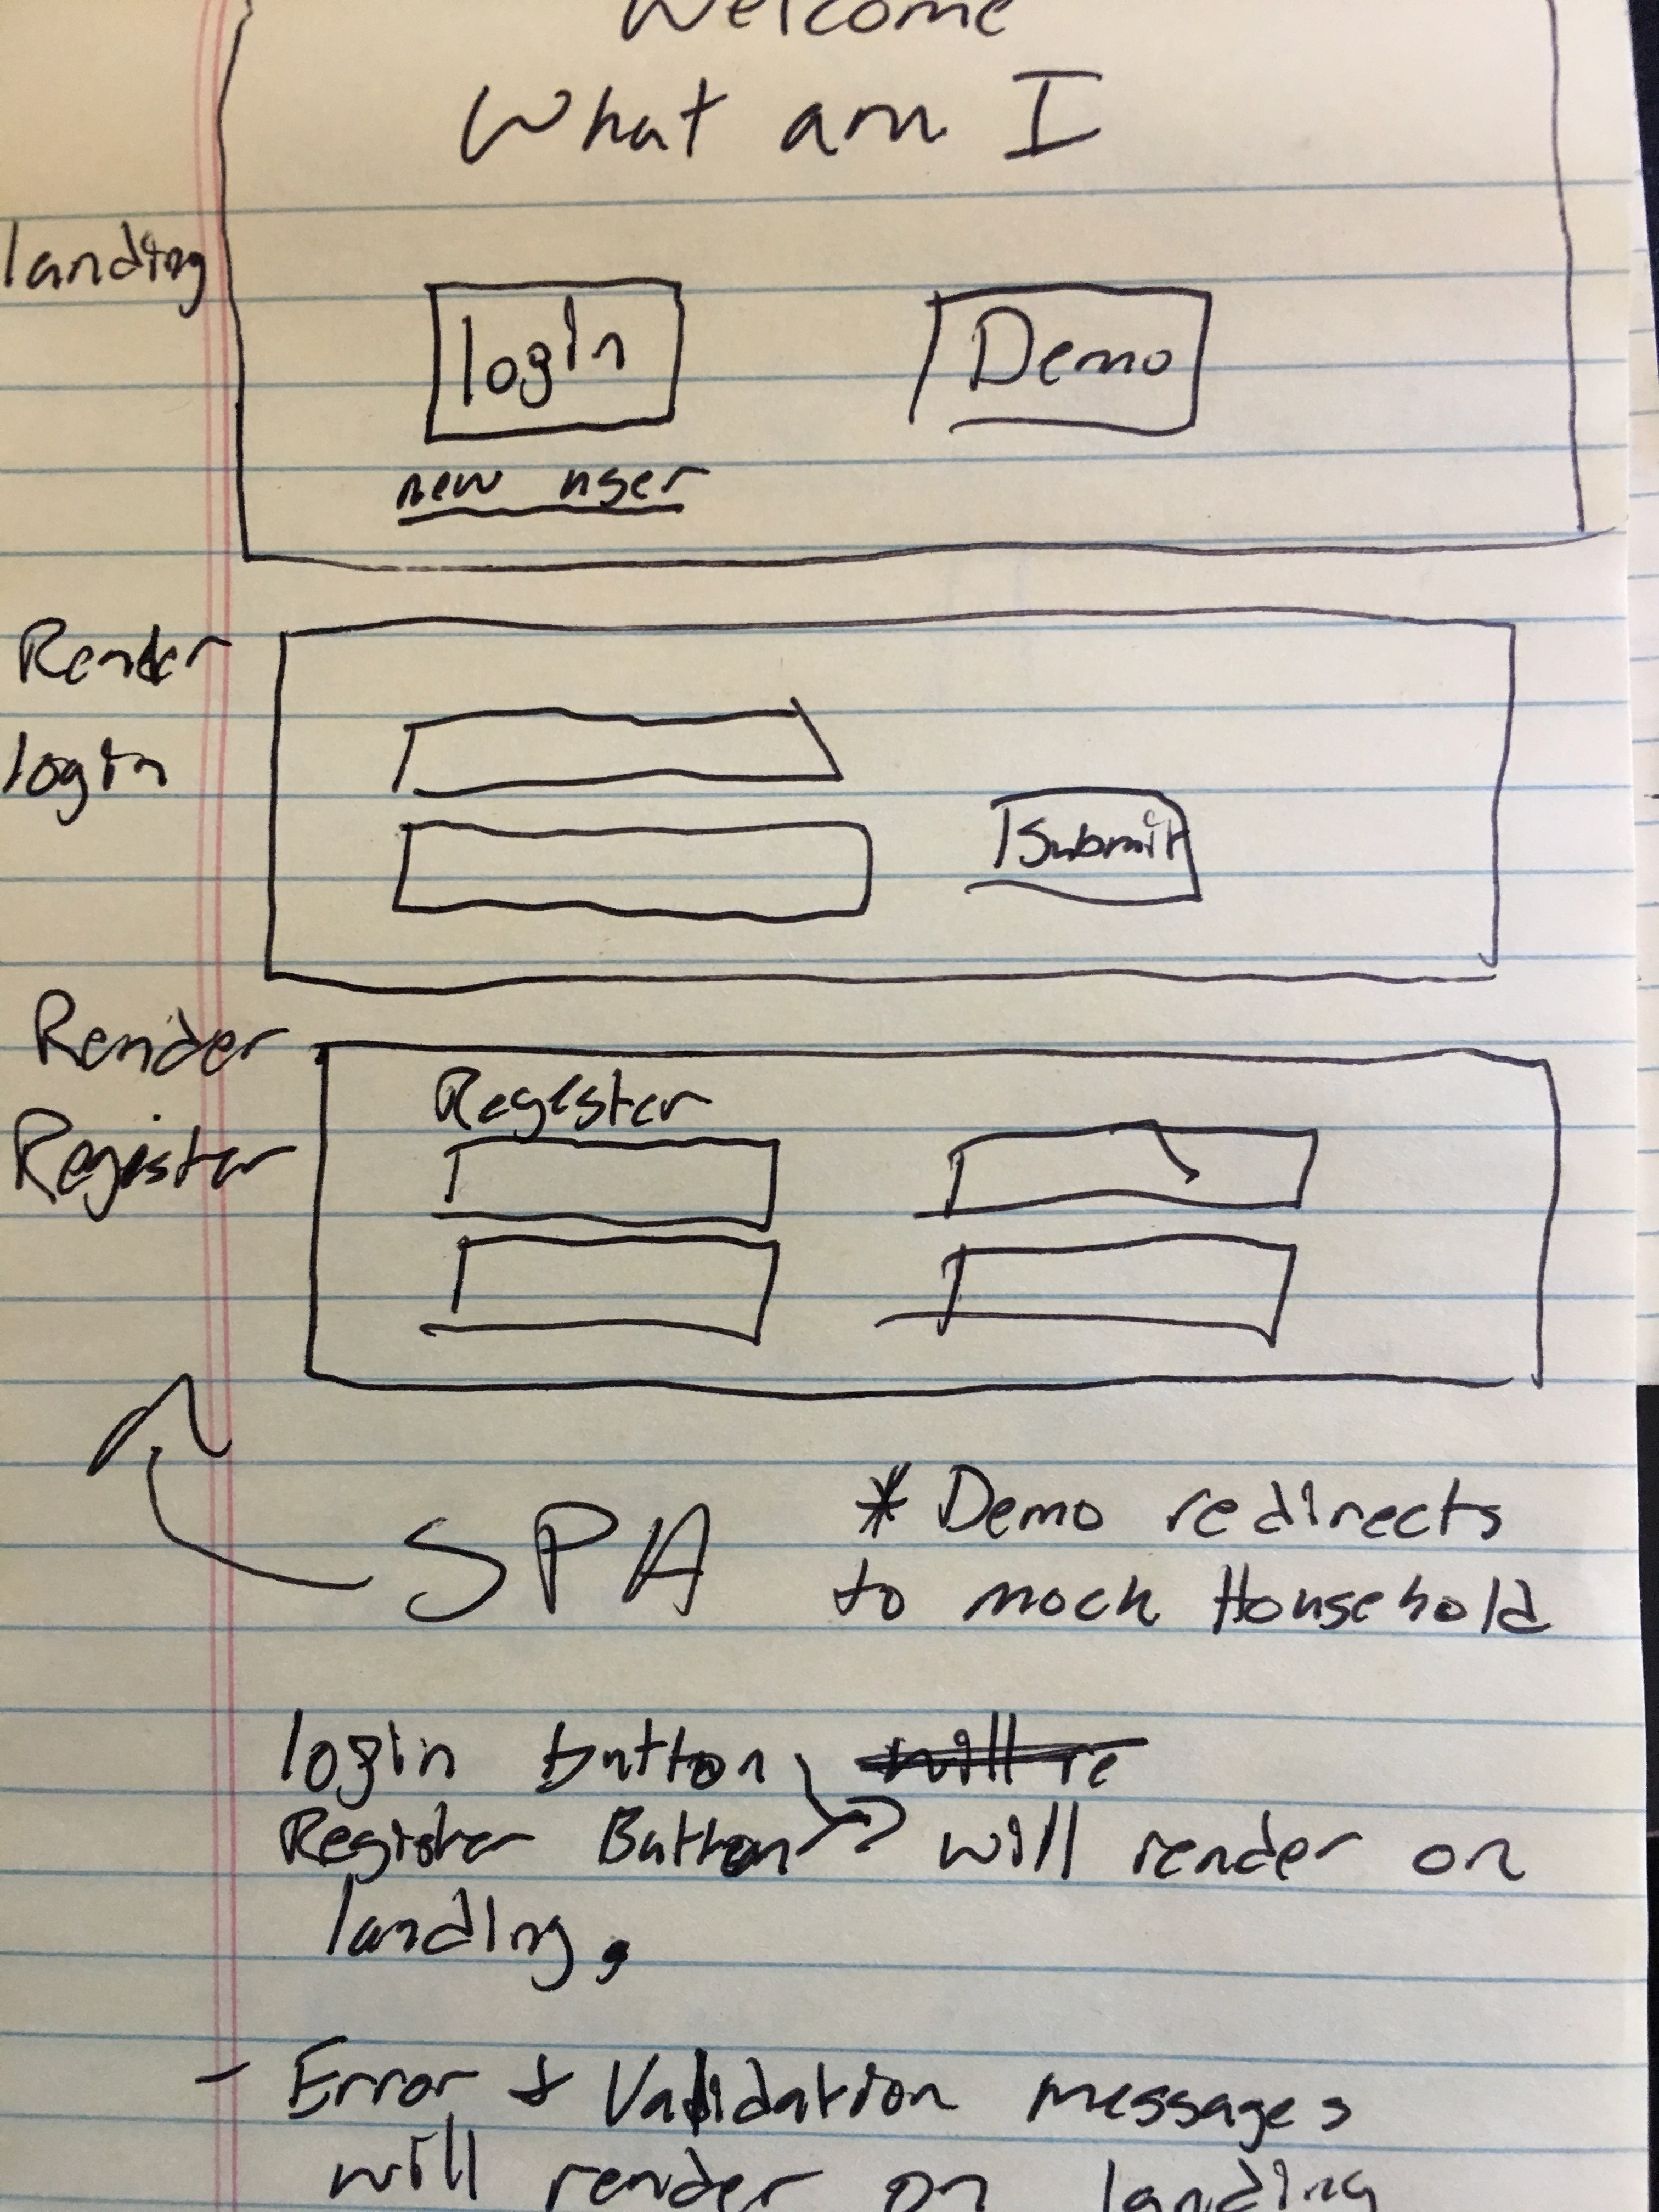 Welcome
What am I
landing
login
Demo
new user
Render
login
Submit
Render
Register
Register
SPA
* Demo redirects
to mock Household
login button will re
Register Button will render on
landing.
- Error & Validation messages
will render on landing